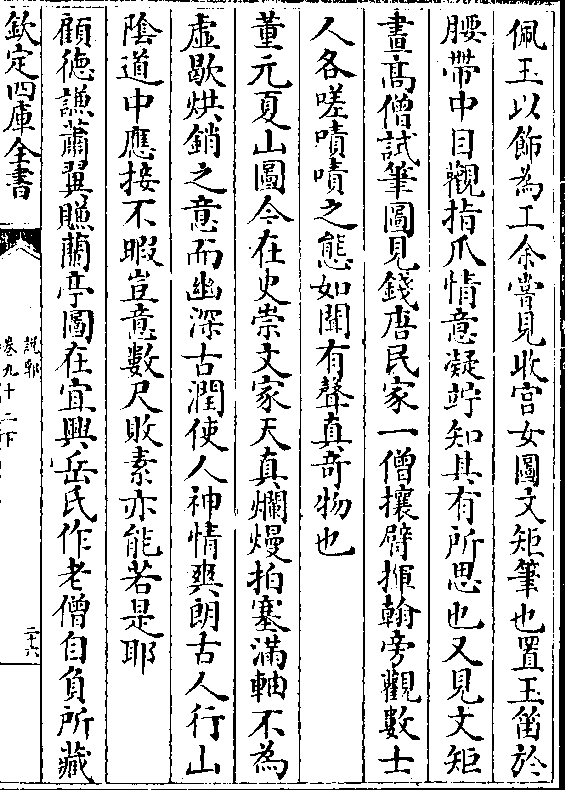 佩玉以飾為工余嘗見收宫女圖文矩筆也置玉笛於
腰帶中目觀指爪情意凝竚知其有所思也又見文矩
畫髙僧試筆圖見錢唐民家一僧攘臂揮翰旁觀數士
人各嗟嘖嘖之態如聞有聲真奇物也
董元夏山圖今在史崇文家天真爛熳拍塞滿軸不為
虚歇烘銷之意而幽深古潤使人神情爽朗古人行山
陰道中應接不暇豈意數尺敗素亦能若是耶
顧德謙蕭翼賺蘭亭圖在宜興岳氏作老僧自負所藏
欽定四庫全書
說郛
卷九十二下
二十六